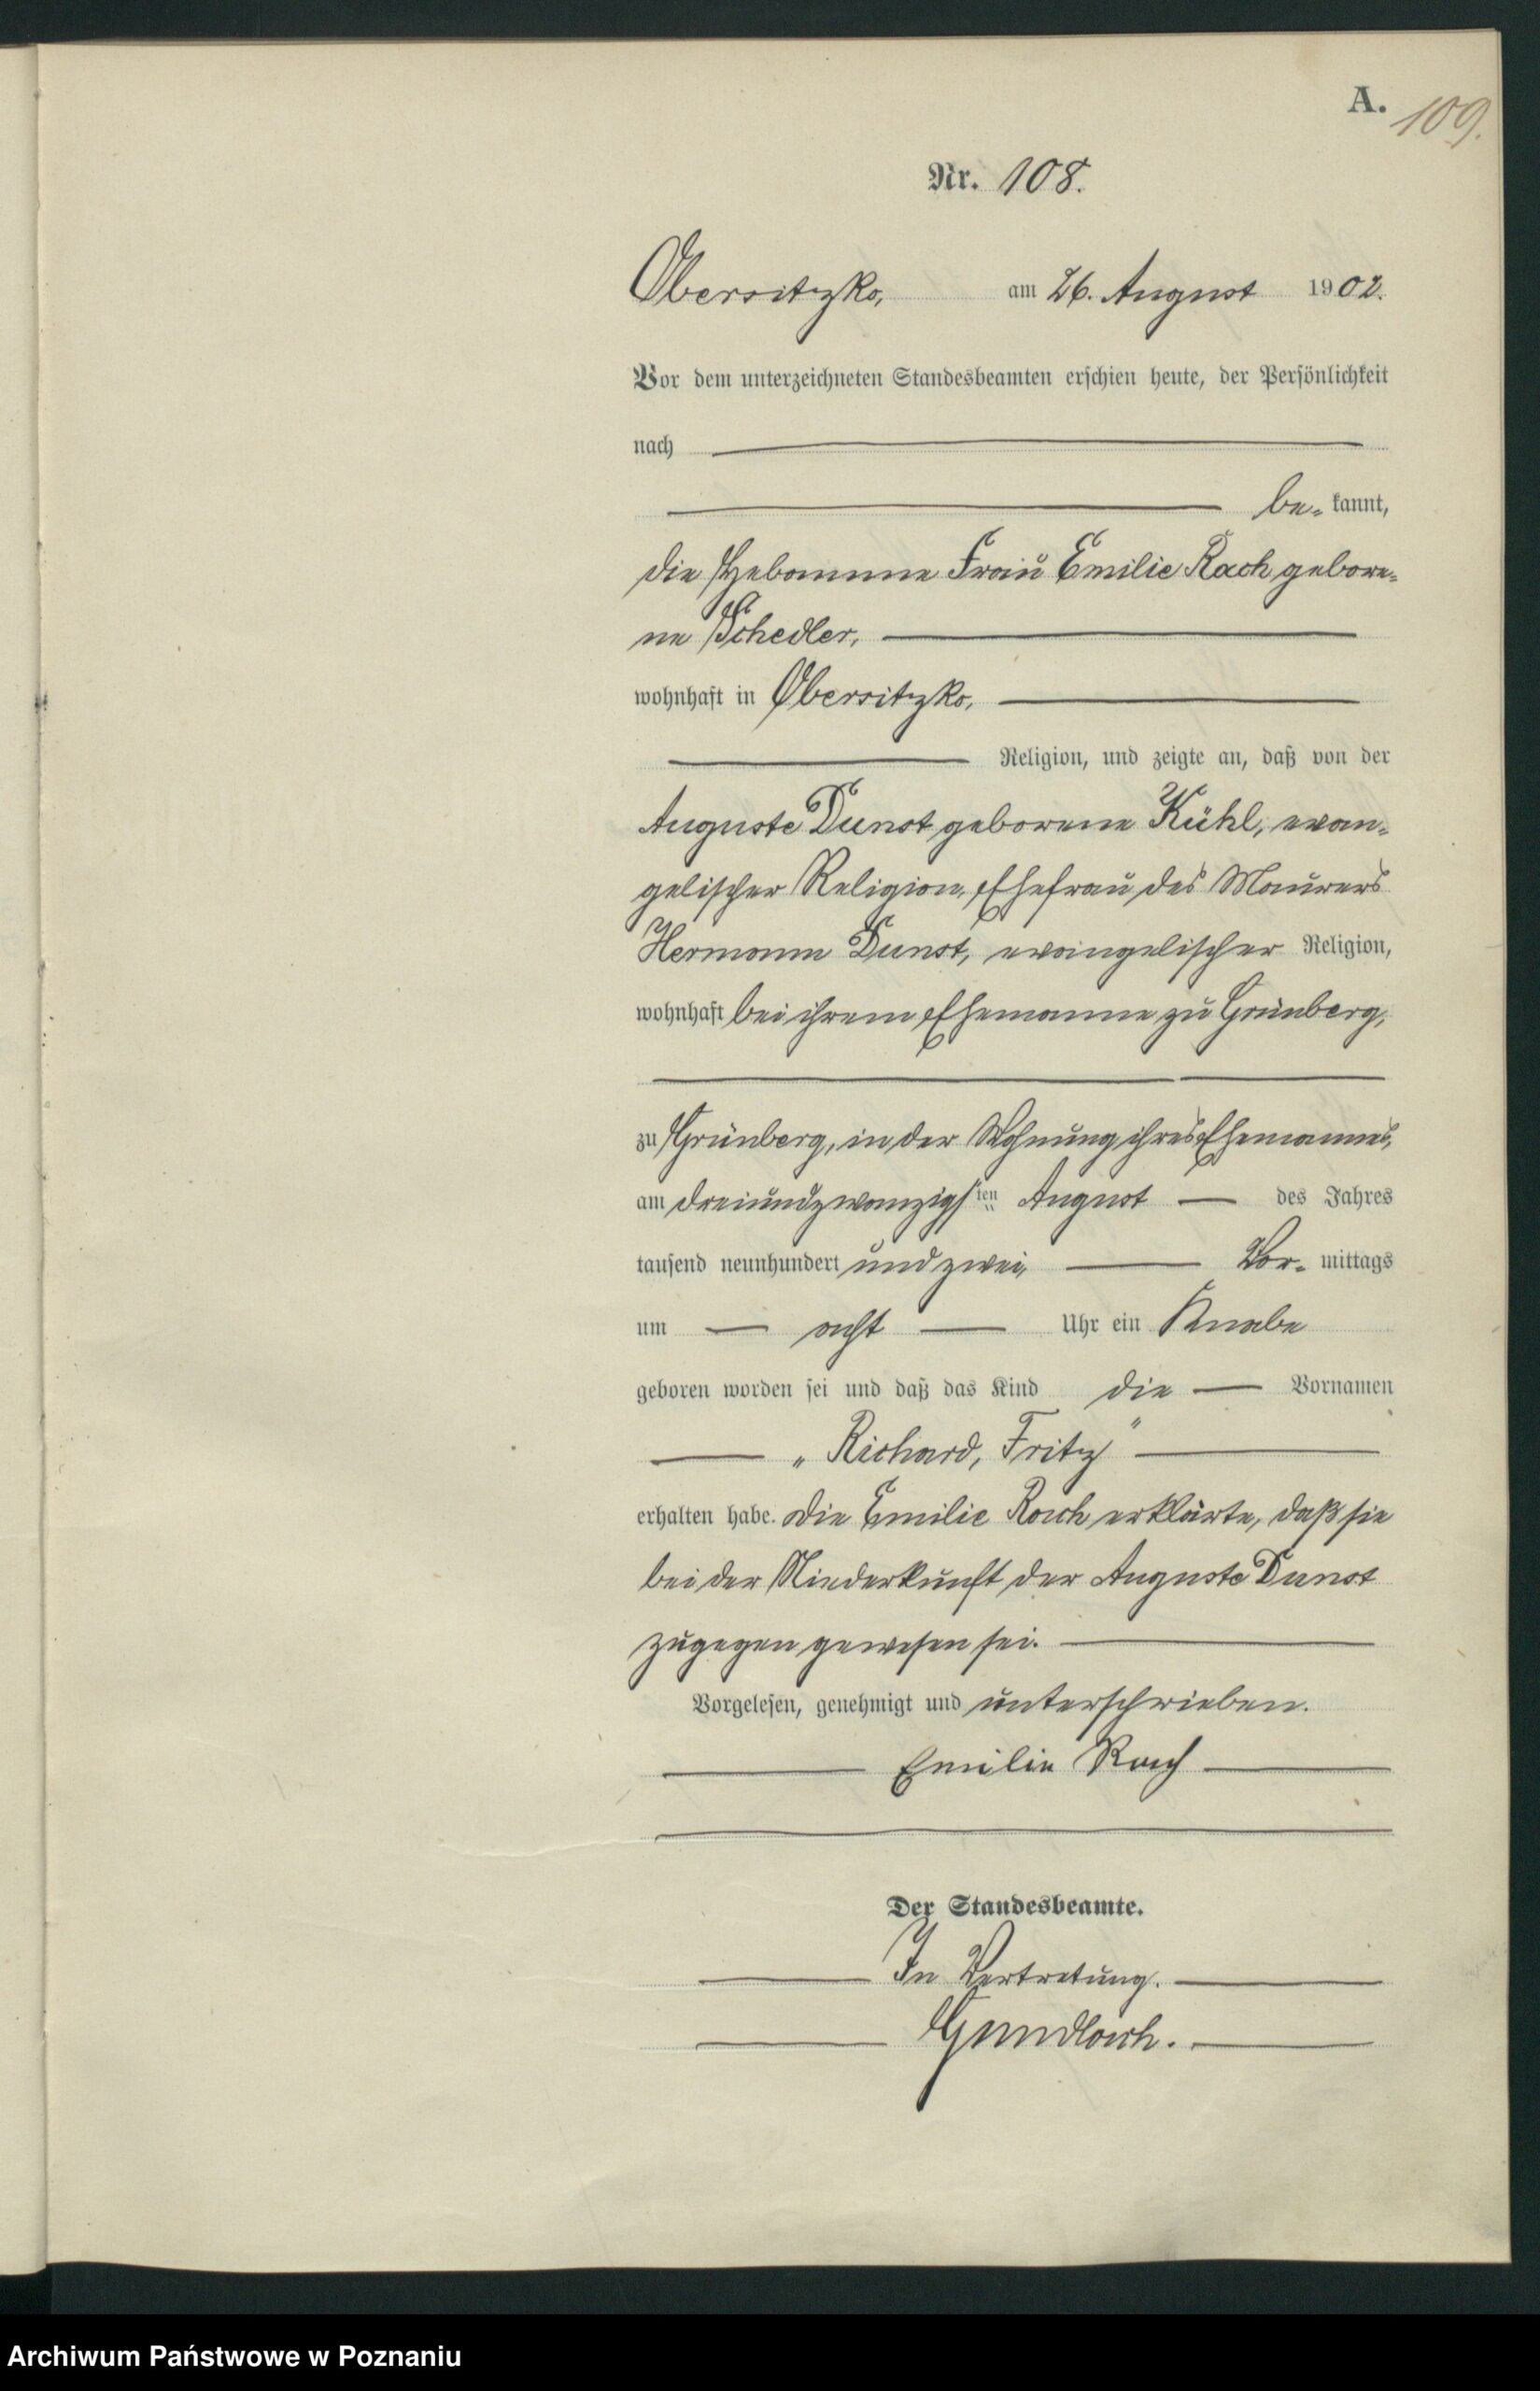 A. 109.
Nr. 108.
Obersitzko, am 26. August 1902.
Vor dem unterzeichneten Standesbeamten erschien heute, der Persönlichkeit
nach
be- kannt,
die Hebamme Frau Emilie Rach gebore-
ne Schedler,
wohnhaft in Obersitzko,
Religion, und zeigte an, daß von der
Auguste Dunst geborene Kühl, evan-
gelischer Religion, Ehefrau des Maurers
Hermann Dunst, evangelischer Religion,
wohnhaft bei ihrem Ehemanne zu Grünberg,
zu Grünberg, in der Wohnung ihres Ehemannes,
am dreiundzwanzigsten August des Jahres
tausend neunhundert und zwei, Vor- mittags
um acht Uhr ein Knabe
geboren worden sei und daß das Kind die Vornamen
„Richard, Fritz"
erhalten habe. Die Emilie Rach erklärte, daß sie
bei der Niederkunft der Auguste Dunst
zugegen gewesen sei.
Vorgelesen, genehmigt und unterschrieben.
Emilie Rach
Der Standesbeamte.
In Vertretung.
Gundlach.
Archiwum Państwowe w Poznaniu